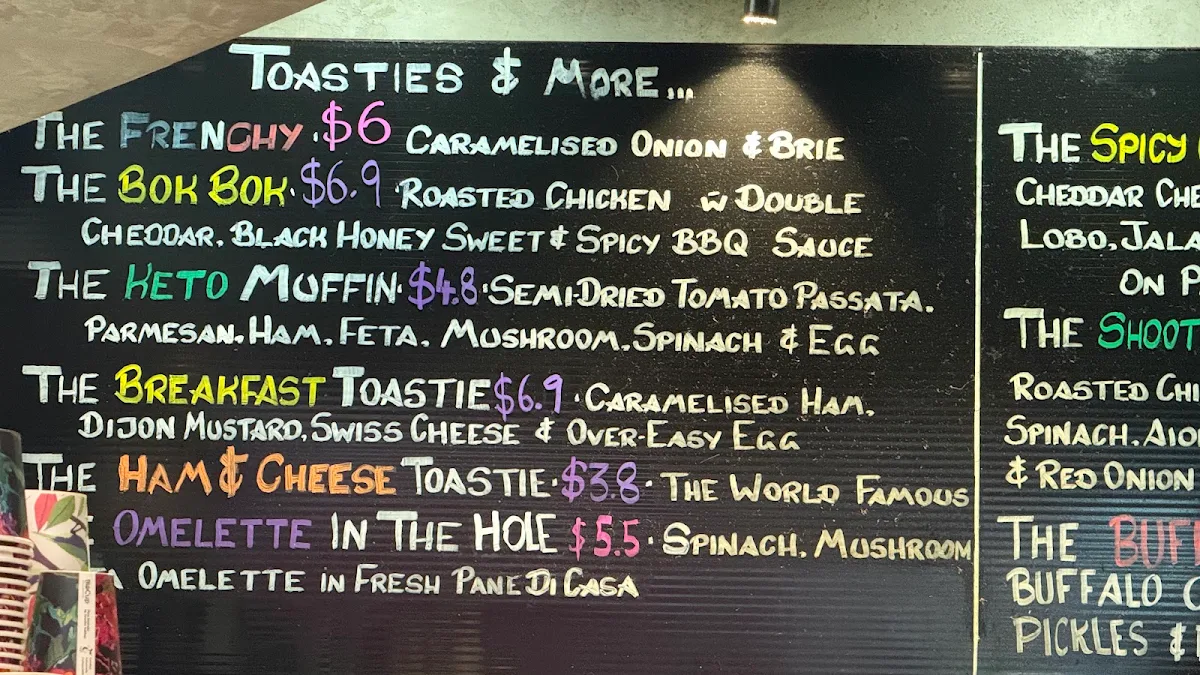 TOASTIES & MORE...
THE FRENCHY · $6 CARAMELISED ONION & BRIE
THE BOK BOK · $6.9 · ROASTED CHICKEN W DOUBLE
CHEDDAR, BLACK HONEY SWEET & SPICY BBQ SAUCE
THE KETO MUFFIN · $4.8 · SEMI-DRIED TOMATO PASSATA,
PARMESAN, HAM, FETA, MUSHROOM, SPINACH & EGG
THE BREAKFAST TOASTIE $6.9 · CARAMELISED HAM,
DIJON MUSTARD, SWISS CHEESE & OVER-EASY EGG
THE HAM & CHEESE TOASTIE · $3.8 · THE WORLD FAMOUS
OMELETTE IN THE HOLE $5.5 · SPINACH, MUSHROOM
OMELETTE IN FRESH PANE DI CASA
THE SPICY
CHEDDAR CHE
LOBO, JALA
ON P
THE SHOOT
ROASTED CHI
SPINACH, AIO
& RED ONION
THE BUFF
BUFFALO C
PICKLES &